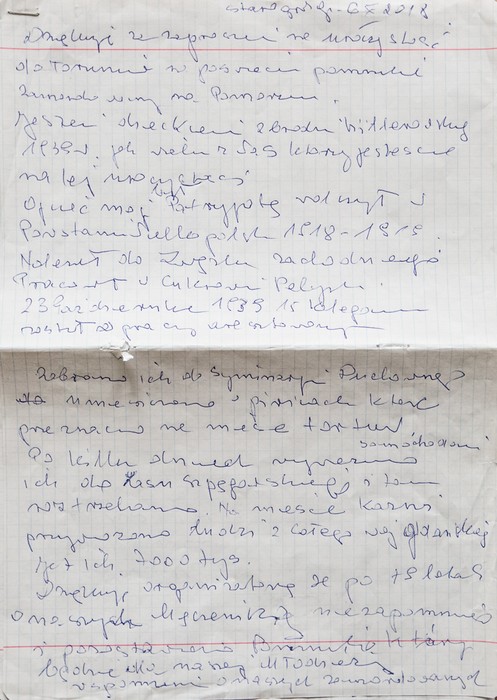 Starogard - 6 X 2018
Dziękuję za zaproszenie na uroczystość
do Torunia w poświęceniu pomniki
zamordowany na Pomorzu.
Jestem dzieckiem zbrodni hitlerowskiej
1939 r. jak wielu z Was którzy jesteście
na tej uroczystości
Ojciec mój był Patryjotą walczył w
Powstaniu Wielkopolskim 1918 - 1919.
Należał do Związku zachodniego
Pracował w Cukrowni Pelplin.
23 Października 1939 15 kolegami
został z pracy aresztowany
Zabrano ich do Syminarjum Duchownego
umieszczono w piwnicach które
przeznaczono na miejsce tortur
samochodami
Po kilku dniach wywieziono
ich do Lasu Szpęgawskiego i tam
rozstrzelano. Na miejsce Kaźni
przywożono ludzi z całego woj gdańskiej
jest ich 7000 tyś.
Dziękuję organizatorą że po 79 latach
o naszych Męczenikach niezapomnieli
i powstawienia Pomnika który
będzie dla naszej Młodzieży
wspomnieni o naszych zamordowanych